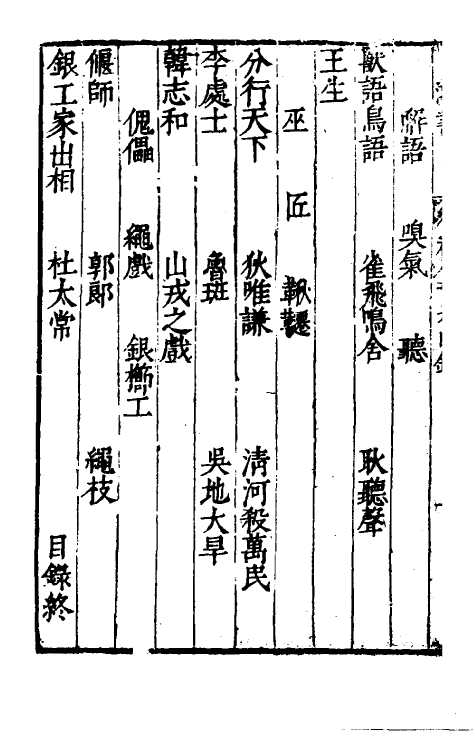 解語　嗅氣　聽
獸語鳥語　雀飛鳴舍　耿聽聲
王生
巫　匠　鞦韆
分行天下　狄唯謙　清河殺萬民
李處士　魯班　吳地大旱
韓志和　山戎之戲
傀儡　繩戲　銀櫛工
偃師　郭郎　繩技
銀工家出相　杜太常　目錄終